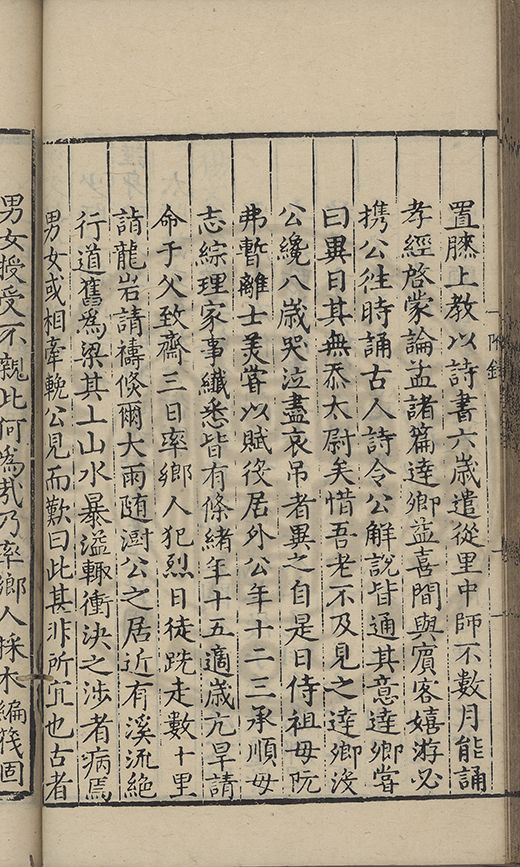 置膝上教以詩書六歲遣從里中師不數月能誦
孝經啓蒙論孟諸篇達卿益喜間與賓客嬉游必
携公往時誦古人詩令公解說皆通其意達卿嘗
曰異日其無忝太尉矣惜吾老不及見之達卿没
公纔八歲哭泣盡哀吊者異之自是日侍祖母阮
弗暫離士美嘗以賦役居外公年十二三承順母
志綜理家事纖悉皆有條緒年十五適歲亢旱請
命于父致齋三日率鄉人犯烈日徒跣走數十里
詣龍岩請禱倐爾大雨随澍公之居近有溪流絶
行道舊為梁其上山水暴溢輙衝决之涉者病焉
男女或相牽輓公見而歎曰此甚非所宜也古者
男女授受不親此何為哉乃率鄉人採木編筏固
附錄